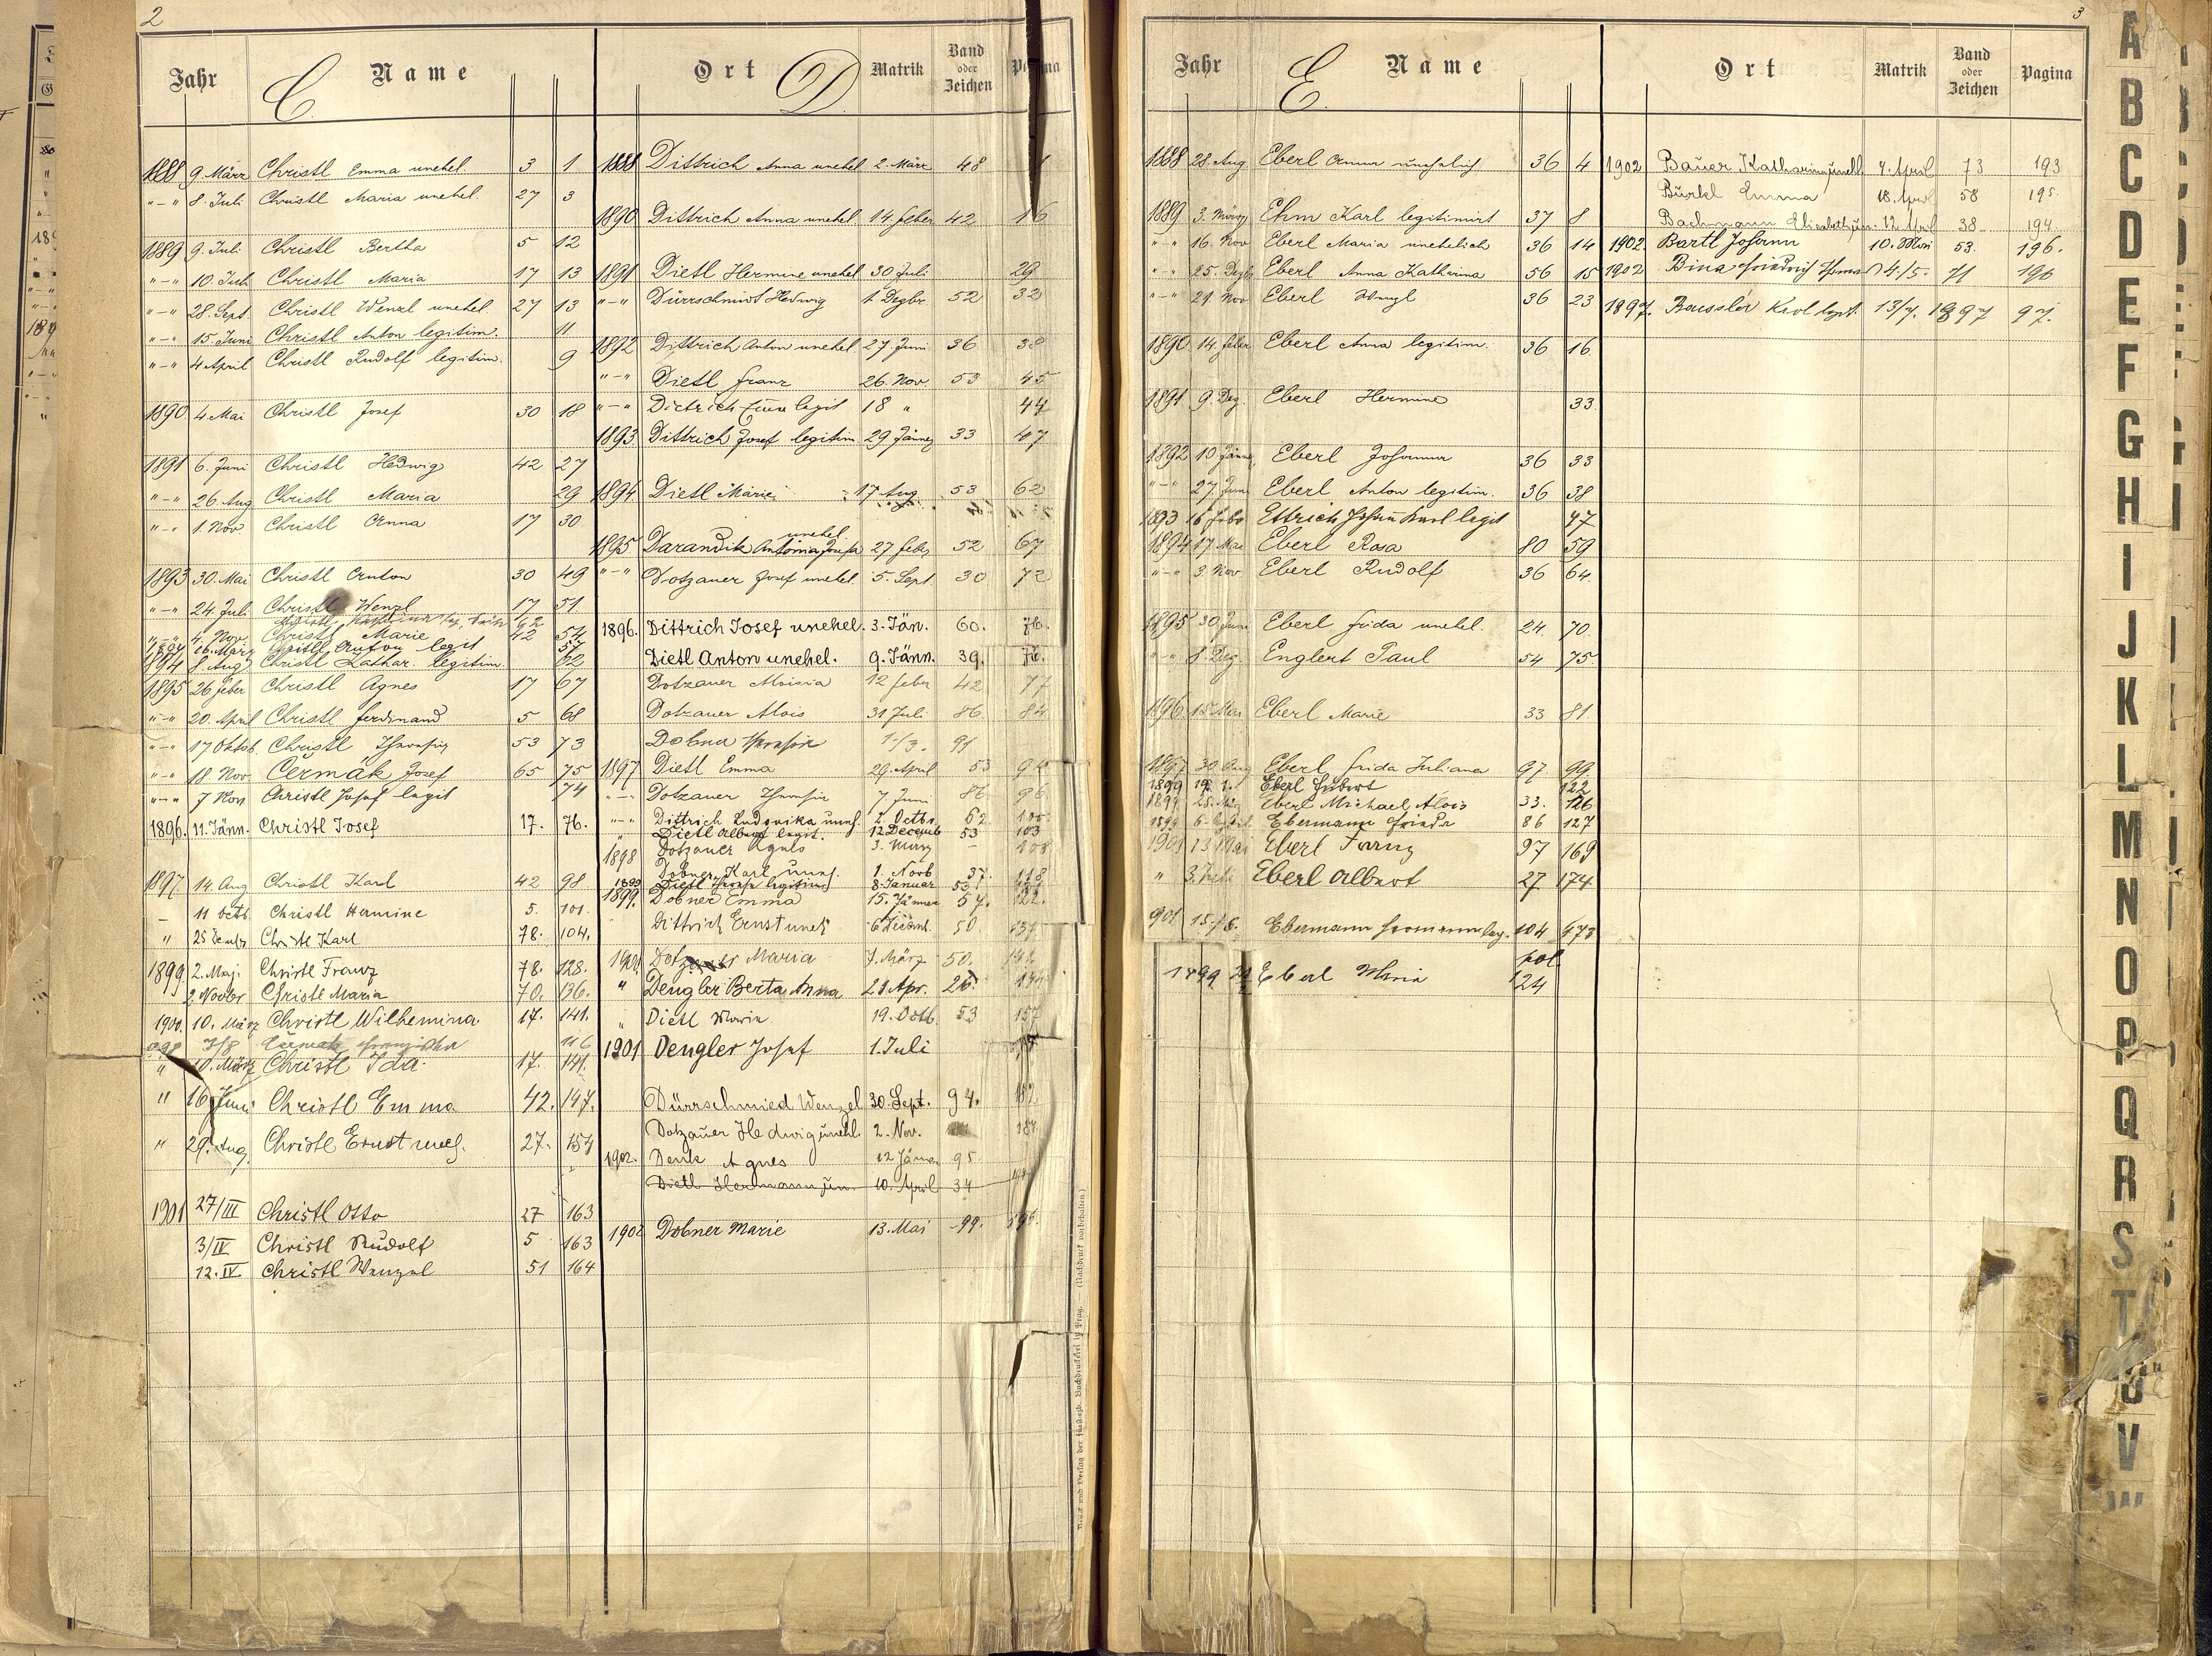 2
Jahr Name Ort Matrik Band oder Zeichen Pagina
C. D.
1888 9. März Christl Emma unehel. 3 1
"-" 8. Juli Christl Maria unehel. 27 3
1889 9. Juli Christl Bertha 5 12
"-" 10. Juli Christl Maria 17 13
"-" 28. Sept. Christl Wenzl unehel. 27 13
"-" 15. Juni Christl Anton legitim. 11
"-" 4 April Christl Rudolf legitim. 9
1890 4. Mai Christl Josef 30 18
1891 6. Juni Christl Hedwig 42 27
"-" 26. Aug Christl Maria 29
"-" 1. Nov. Christl Anna 17 30
1893 30. Mai Christl Anton 30 49
"-" 24. Juli Christl Wenzl 17 51
"-" 4. Nov. Christl Marie 42 54
1894 16. März Christl Anton legit 57
1894 8. Aug Christl Kathar. legitim. 62
1895 26 feber Christl Agnes 17 67
"-" 20. April Christl Ferdinand 5 68
"-" 17 Oktob. Christl Theresia 53 73
"-" 18. Nov Čermák Josef 65 75
"-" 7 Nov Christl Josef legit 74
1896. 11. Jänn. Christl Josef 17. 76.
1897 14. Aug Christl Karl 42 98
11 Octb. Christl Hermine 5. 101.
" 25 Christl Karl 78. 104.
1899 2. Maji Christl Franz 78. 128.
2. Novbr. Christl Maria 70. 136.
1900. 10. März Christl Wilhemina 17. 141.
7/8 116
" 10. März Christl Ida. 17. 141.
" 16 Juni Christl Emma 42. 147.
" 29. Aug. Christl Ernst unehl. 27. 154
1901 27/III Christl Otto 27 163
3/IV Christl Rudolf 5 163
12. IV. Christl Wenzel 51 164
1888 Dittrich Anna unehel 2. März 48
1890 Dittrich Anna unehel 14. feber 42 16
1891 Dietl Hermine unehel 30 Juli 29
"-" Dürrschmidt Hedwig 1. Dezbr. 52 32
1892 Dittrich Anton unehel 27. Juni 36 38
"-" Dietl Franz 26. Nov. 53 45
"-" Dietrich legit 18 " 44
1893 Dittrich Josef legitim. 29 Jänner 33 47
1894 Dietl Marie 17 Aug 53 62
1895 Darandik Antonia Josefa unehel 27 feber 52 67
"-" Dotzauer Josef unehel. 5. Sept. 30 72
1896. Dittrich Josef unehel. 3. Jän. 60. 76.
Dietl Anton unehel. 9. Jänn. 39. 76.
Dotzauer Aloisia 12 feber 42 77
Dotzauer Alois 31 Juli 86 84
Dobner Theresia 1./3. 91
1897 Dietl Emma 29. April 53 94
"-" Dotzauer Theresia 7. Juni 86 96
"-" Dittrich Ludovika unehl. 2. Octbr. 62 100
" Dietl Albert legit. 12 Decemb 53 103
1898 Dotzauer Agnes 3. März - 108
Dobner Karl unehl. 1. Novb 37. 118
1899 Dietl legitim 8. Januar 53
1899. Dobner Emma 15. Jänner 57. 122.
Dittrich Ernst unehl 50. 137
1900 Maria 7. März 50. 142
" Dengler Berta Anna 21 Apr. 26.
" Dietl Maria 19. Octb. 53 157
1901 Dengler Josef 1. Juli
Dürrschmied Wenzel 30. Sept. 94. 182
Dotzauer Hedwig unehl. 2. Nov. 184
1902. Denk Agnes 12 Jänner 95
Dietl Hermann un. 10. April 34
1902 Dobner Marie 13. Mai 99. 196.
Druck und Verlag der fürsterzb. Buchdruckerei in Prag. (Nachdruck vorbehalten.)
3
Jahr Name Ort Matrik Band oder Zeichen Pagina
E.
1888 28. Aug Eberl Anna unehelich 36 4
1889 3. März Ehm Karl legitimirt 37 8
"-" 16. Nov Eberl Maria unehelich 36 14
"-" 25. Dezb Eberl Anna Katharina 56 15
"-" 21. Nov Eberl Wenzl 36 23
1890 14. feber Eberl Anna legitim. 36 16
1891 9. Dez. Eberl Hermine 33.
1892 10 Jänner Eberl Johanna 36 33
"-" 27. Juni Eberl Anton legitim. 36 38
1893 16 Febr Ettrich Johann Karl legit 47
1894 17 Mai Eberl Rosa 80 59
"-" 3. Nov Eberl Rudolf 36 64
1895 30 Juni Eberl Frida unehel. 24. 70.
"-" 8. Dez. Englert Paul 54 75
1896 15. Mai Eberl Marie 33 81
1897 30 Aug Eberl Frida Juliana 97 99
1899 19. 1. Eberl Hubert 122
1899 Eberl Michael Alois 33. 126
1899 6. April Ebermann 86 127
1901 13 Mai Eberl Franz 97 169
" 3. Juli Eberl Albert 27 174
901 15./6. Ebermann Hermann leg. 104 173
1899 21 Eberl Maria 124
1902 Bauer Katharina unehl. 4. April 73 193
Bürkl Emma 18. April 58 195.
Bachmann Elisabeth un. 12. April 38 194
1902. Bartl Johann 10. Mai 53. 196.
1902 Bina Friedrich 4./5. 71 196
1897. Baessler Karl legit. 13/7. 1897 97.
A
B
C
D
E
F
G
H
I
J
K
L
M
N
O
P
Q
R
S
T
U
V
W